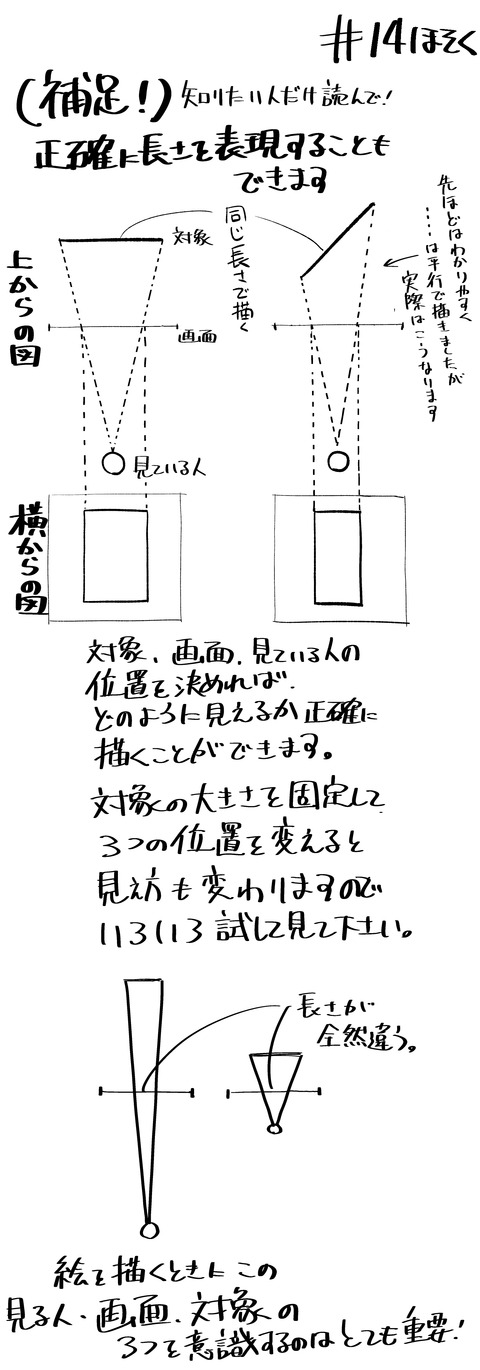 #14ほそく
(補足!)知りたい人だけ読んで!
正確に長さを表現することも
できます
上からの図
対象
画面
見ている人
同じ長さで描く
先ほどはわかりやすく
……は平行で描きましたが
実際はこうなります
横からの図
対象、画面、見ている人の
位置を決めれば、
どのように見えるか正確に
描くことができます。
対象の大きさを固定して
3つの位置を変えると
見え方も変わりますので
いろいろ試して見て下さい。
長さが
全然違う。
絵を描くときに この
見る人・画面・対象の
3つを意識するのはとても重要!